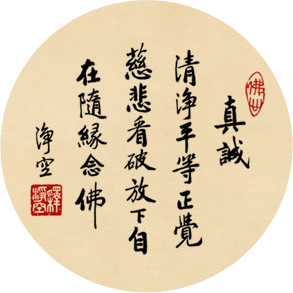 真誠
清淨平等正覺
慈悲看破放下自
在隨緣念佛
淨空